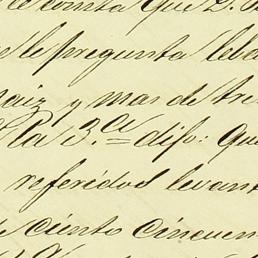 le consta que D.
se le pregunta leva
maiz, y mas de tre
A la 3.a dijo: Que
referidos levant
de ciento cincuen